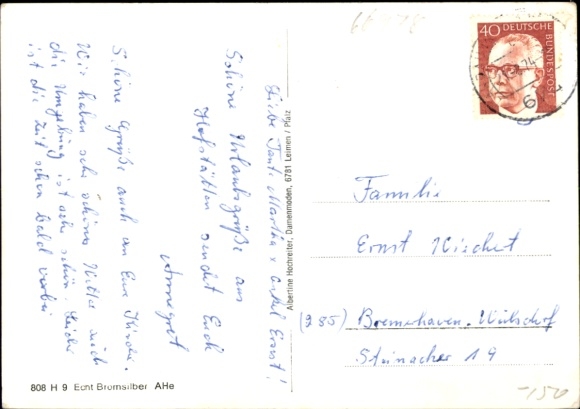 Liebe Tante Martha u Onkel Ernst!
Schöne Urlaubsgrüße aus
Hofstätten sendet Euch
Annegret
Schöne Grüße auch an Eure Kinder.
Wir haben sehr schönes Wetter auch
die Umgebung ist sehr schön. Leider
ist die Zeit schon bald vorbei
Albertine Hochreiter, Damenmoden, 6781 Leimen / Pfalz
808 H 9 Echt Bromsilber AHe
40 DEUTSCHE BUNDESPOST
Familie
Ernst
(285) Bremerhaven-Wulsdorf
Steinacher 19
-150